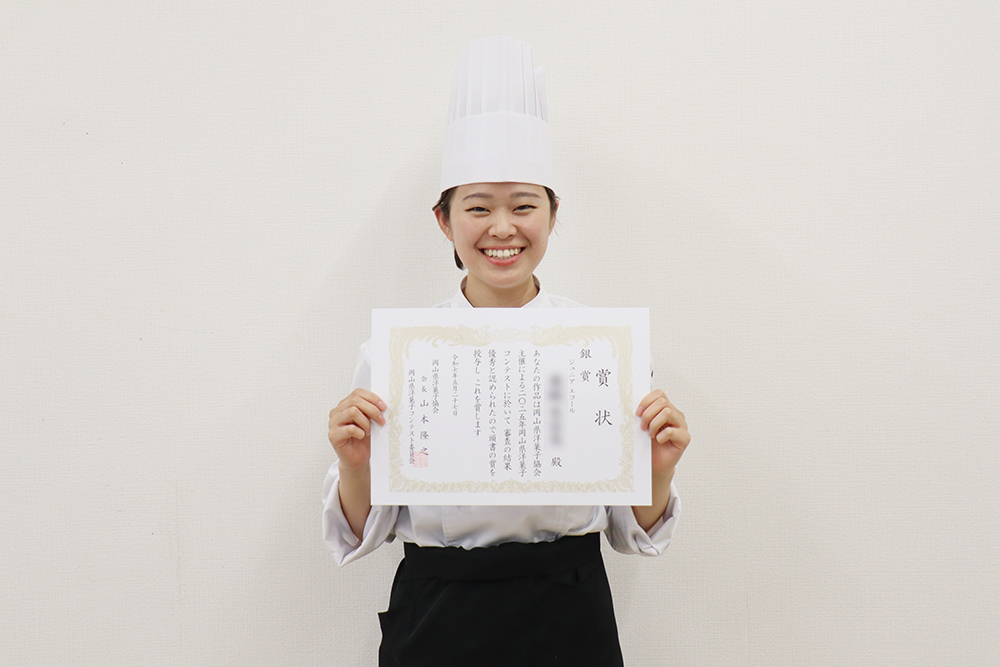 賞状
銀賞
ジュニア エコール
殿
あなたの作品は岡山県洋菓子協会
主催による二〇二五年岡山県洋菓子
コンテストに於いて 審査の結果
優秀と認められたので頭書の賞を
授与し これを賞します
令和七年五月二十七日
岡山県洋菓子協会
会長 山本隆之
岡山県洋菓子コンテスト委員会